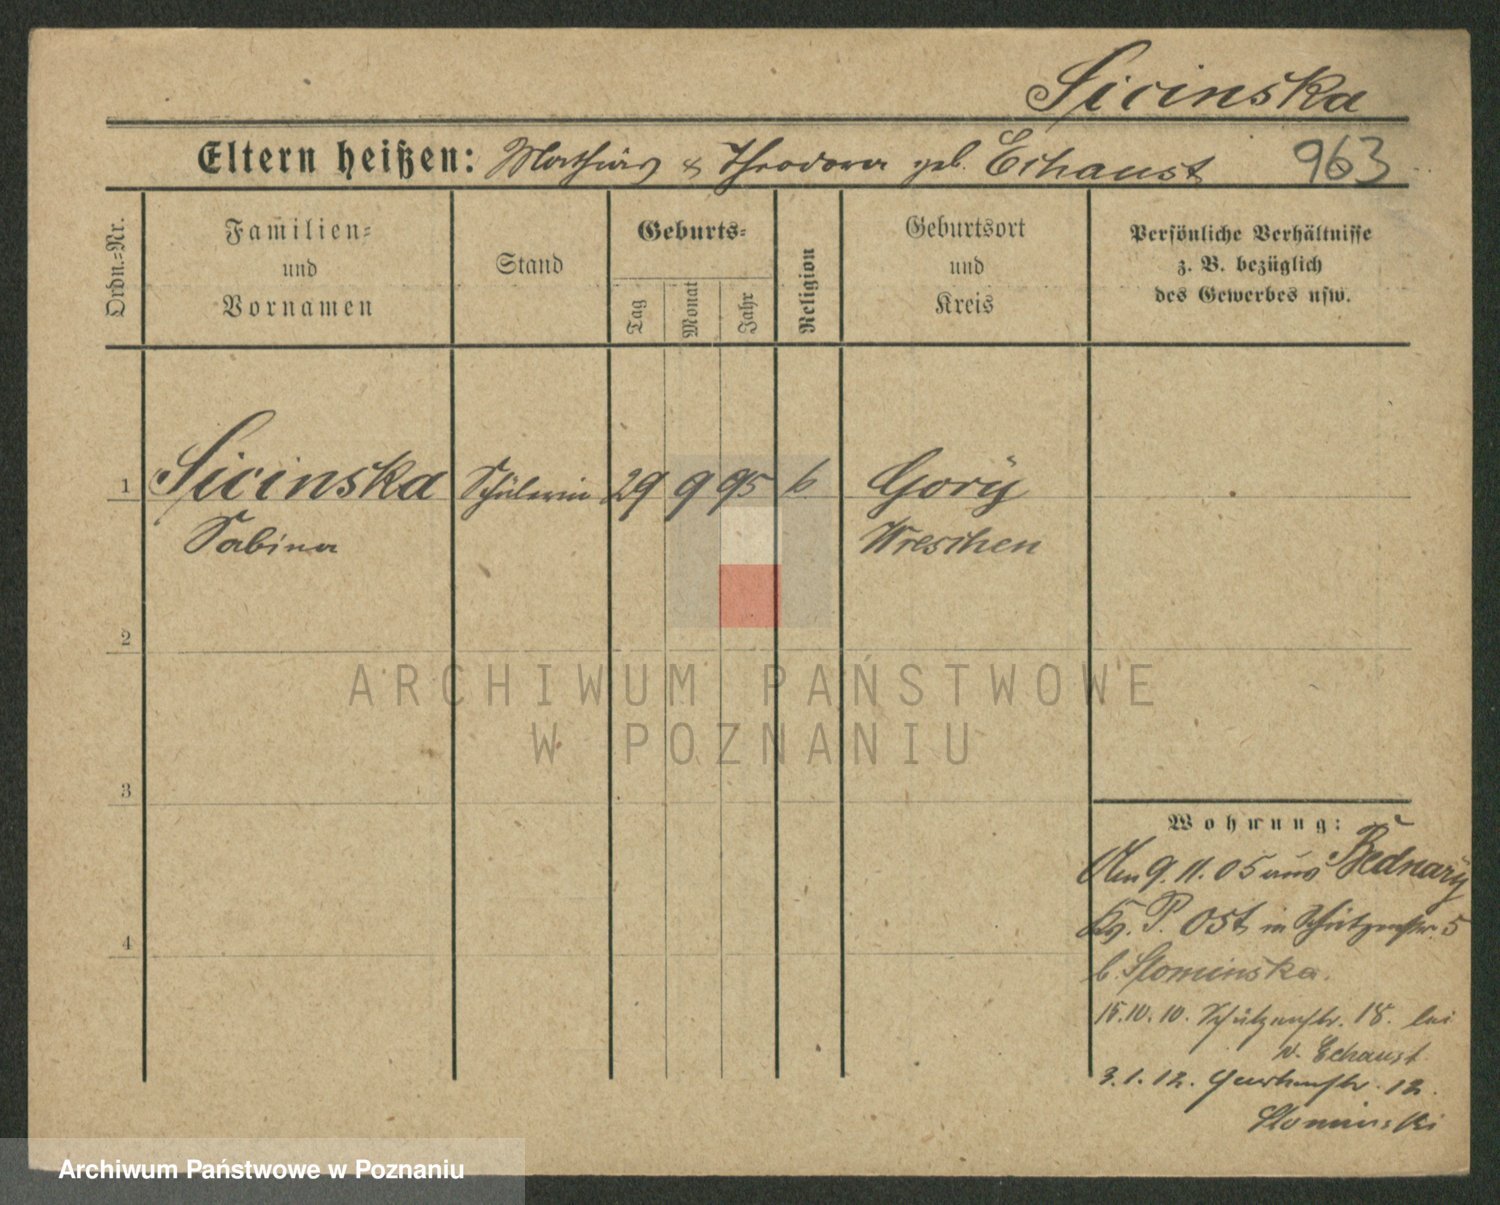 Sicinska
Eltern heißen: Mathias & Theodora geb. Echaust 963
Ordn.=Nr.
Familien=
und
Vornamen
Stand
Geburts=
Tag
Monat
Jahr
Religion
Geburtsort
und
Kreis
Persönliche Verhältnisse
z. B. bezüglich
des Gewerbes usw.
1 Sicinska Schülerin 29 9 95 k Gory
Sabina Wreschen
2
ARCHIWUM PAŃSTWOWE
W POZNANIU
3
Wohnung:
Am 9. 11. 05 aus Bednary
Kr. P. Ost in Schützenstr. 5
b. Slominska.
15. 10. 10. Schützenstr. 18. bei
v. Echaust
3. 1. 12. 12.
Slominski
4
Archiwum Państwowe w Poznaniu